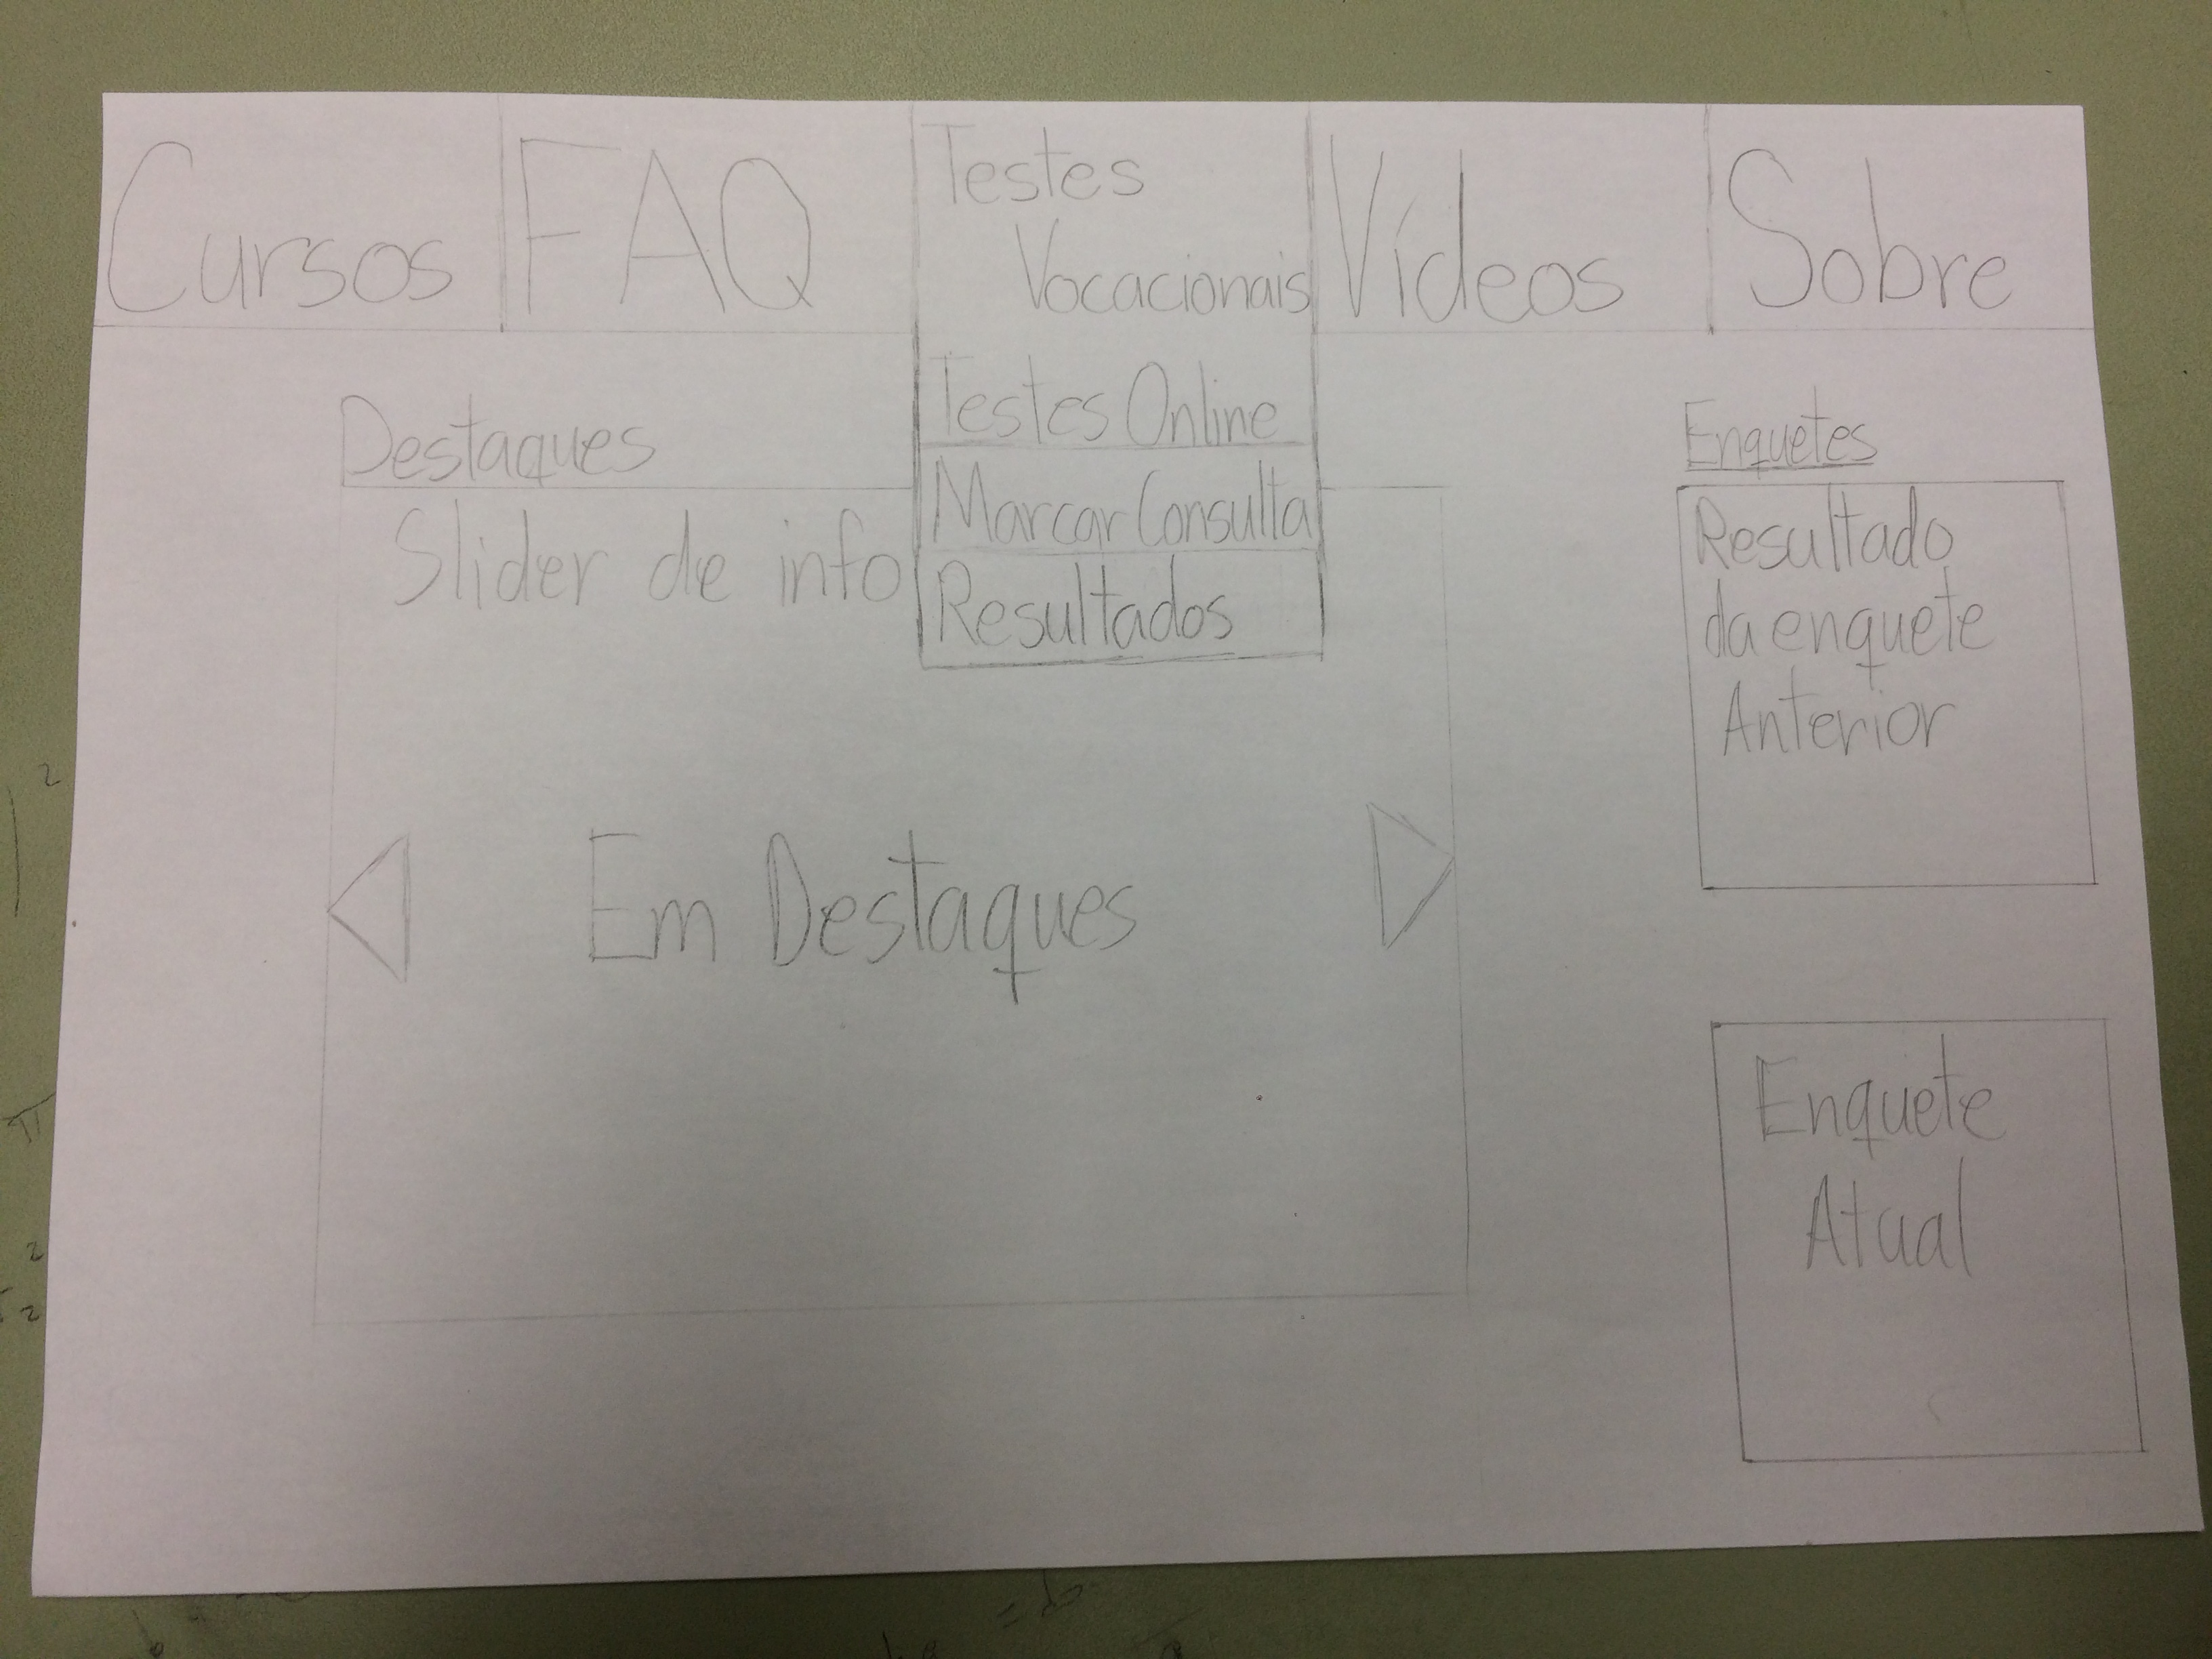 Cursos
FAQ
Testes
Vocacionais
Vídeos
Sobre
Testes Online
Marcar Consulta
Resultados
Destaques
Slider de info
Em Destaques
Enquetes
Resultado
da enquete
Anterior
Enquete
Atual